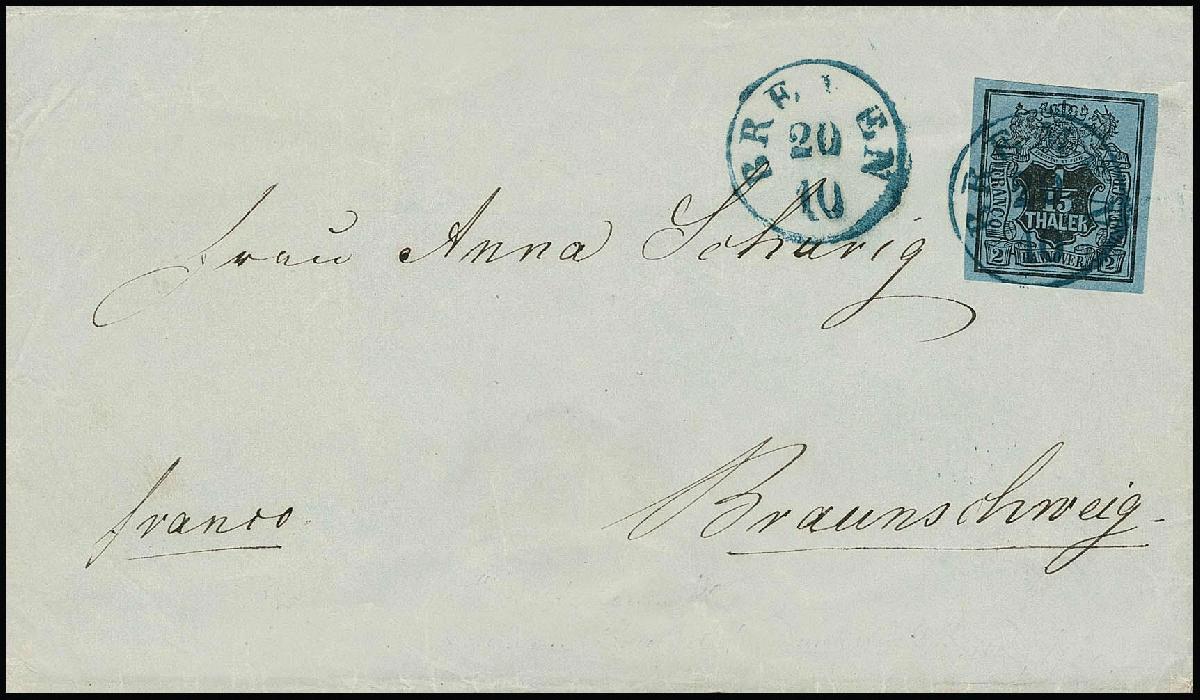 BREMEN
20
10
BRE
FRANCO
1/15
THALER
2
HANNOVER
2
Frau Anna Schurig
franco
Braunschweig